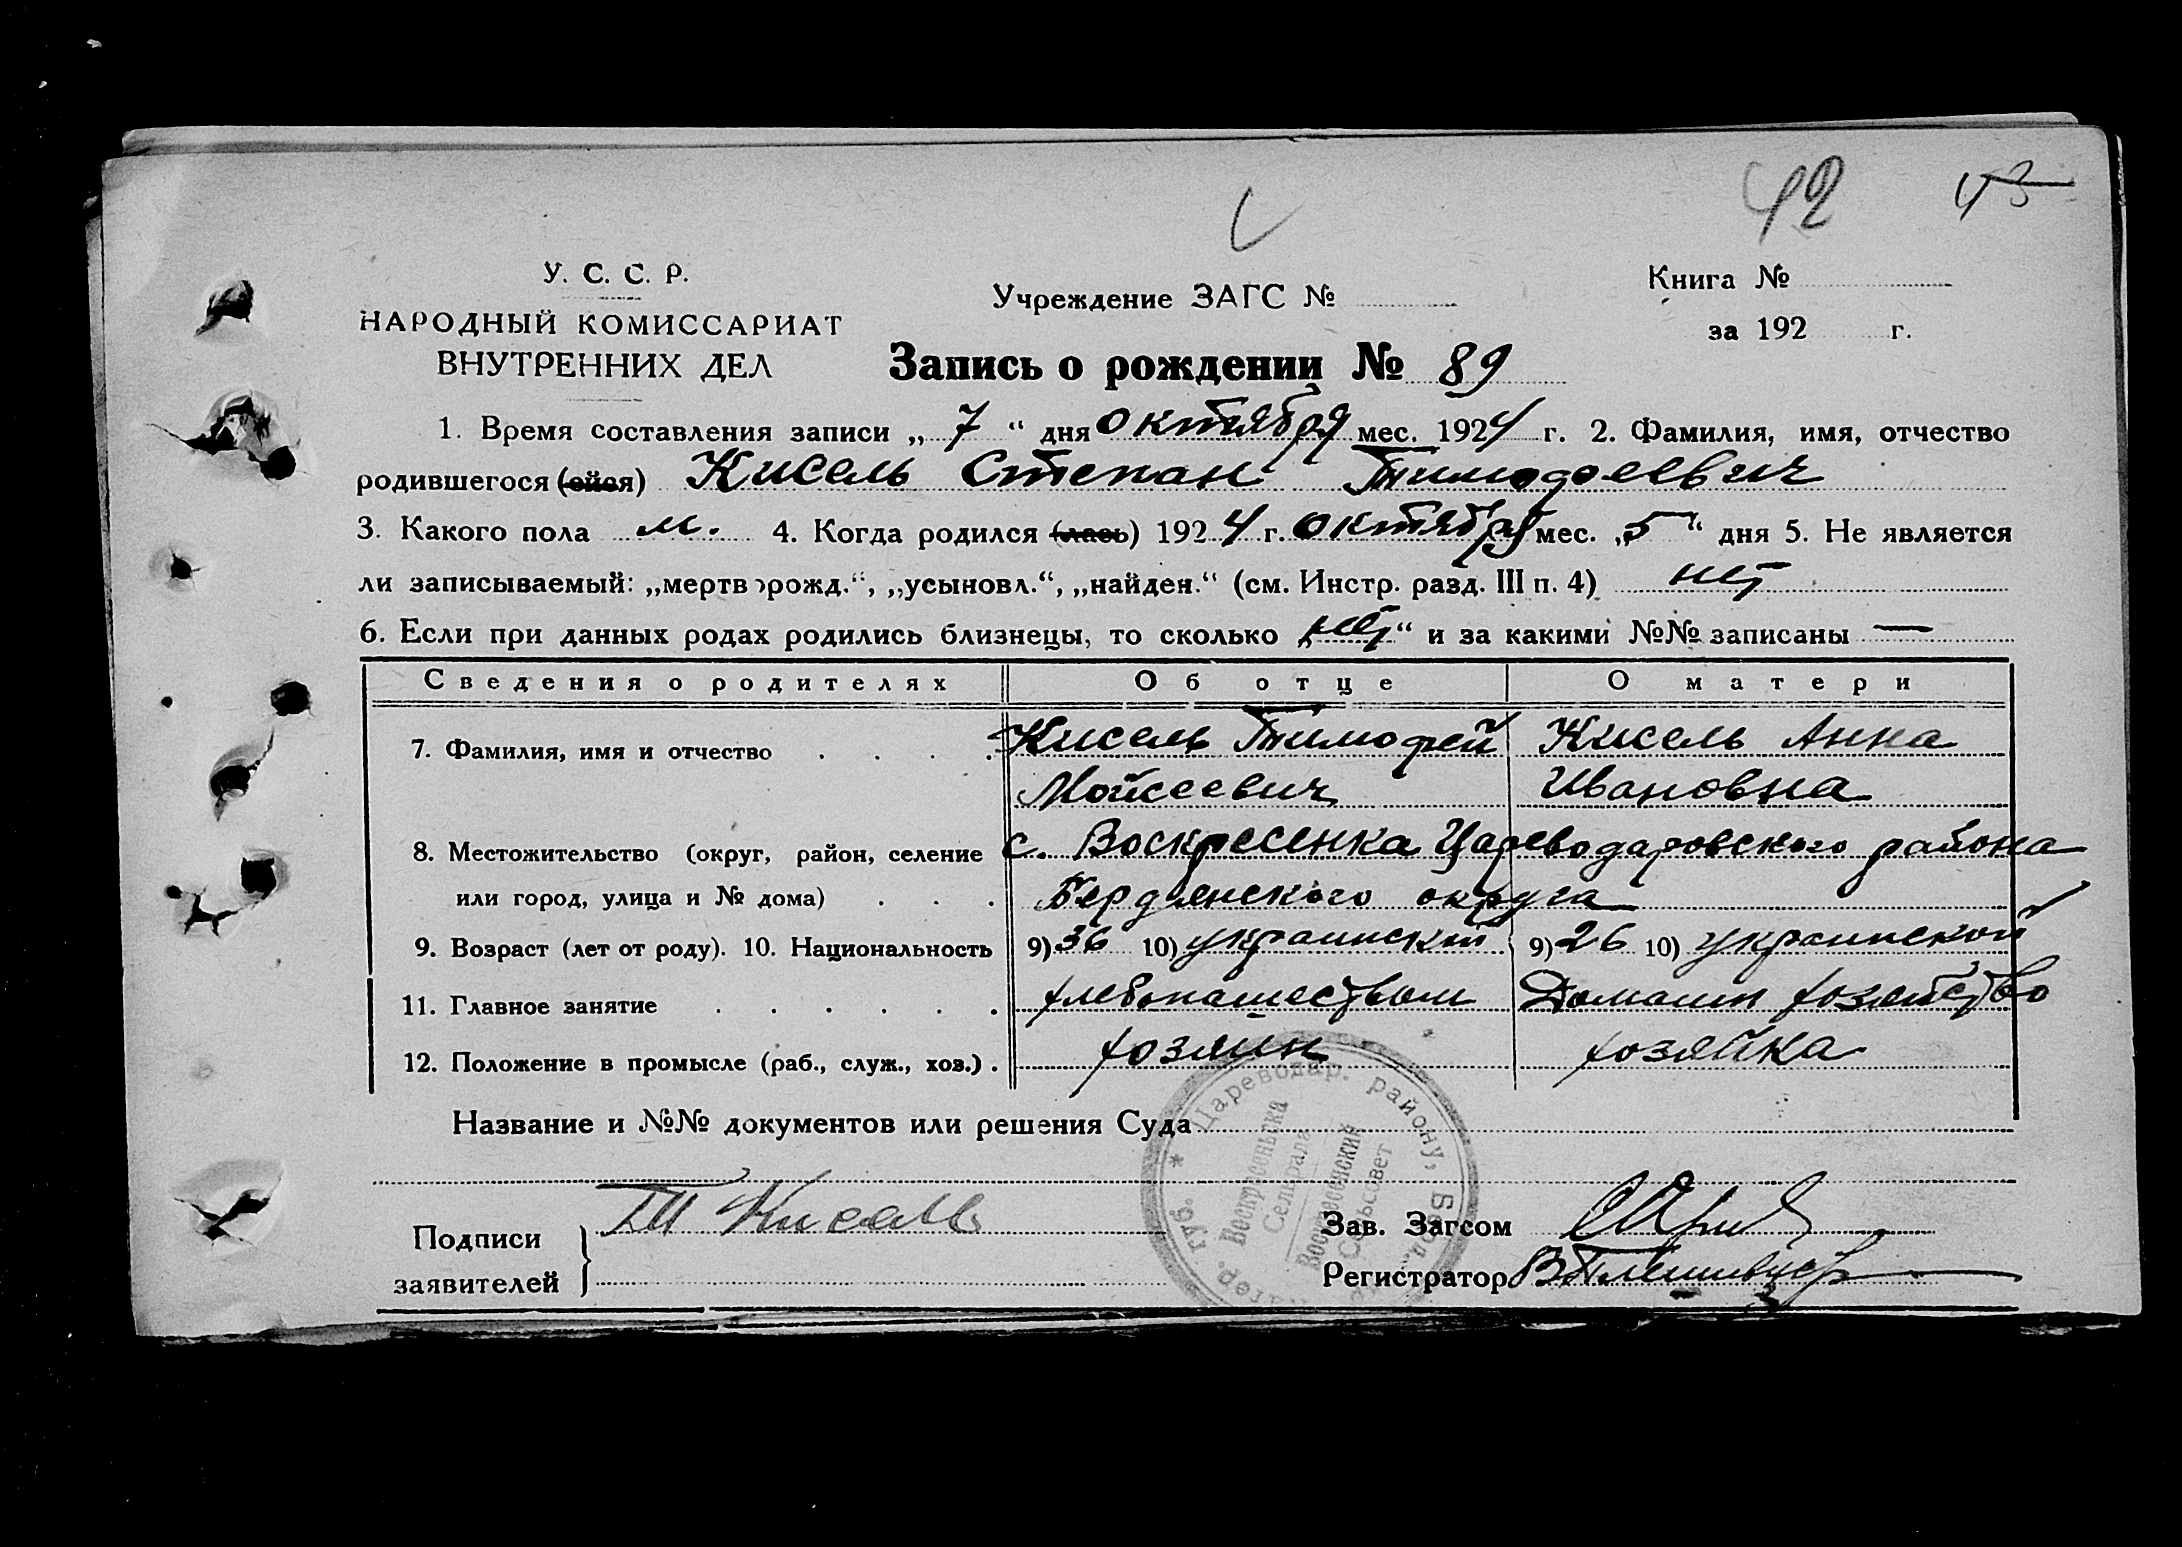 42 43
У. С. С. Р.
НАРОДНЫЙ КОМИССАРИАТ
ВНУТРЕННИХ ДЕЛ
Учреждение ЗАГС №
Книга №
за 192 г.
Запись о рождении № 89
1. Время составления записи „ 7 “ дня октября мес. 1924 г. 2. Фамилия, имя, отчество
родившегося (ейся) Кисель Степан Тимофеевич
3. Какого пола м. 4. Когда родился (лась) 1924 г. октября мес. „5“ дня 5. Не является
ли записываемый: „мертворожд.“, „усыновл.“, „найден.“ (см. Инстр. разд. III п. 4) нет
6. Если при данных родах родились близнецы, то сколько „нет“ и за какими №№ записаны —
Сведения о родителях Об отце О матери
7. Фамилия, имя и отчество . . . . Кисель Тимофей Кисель Анна
Мойсеевич Ивановна
8. Местожительство (округ, район, селение с. Воскресенка Цареводаровского района
или город, улица и № дома) . . . Бердянского округа
9. Возраст (лет от роду). 10. Национальность 9) 36 10) украинской 9) 26 10) украинской
11. Главное занятие . . . . . . хлебопашеством Домашн хозяйство
12. Положение в промысле (раб., служ., хоз.) . хозяин хозяйка
Название и №№ документов или решения Суда
Цареводар. району, Берд.
губ.
Воскресенська
Сельрада
Воскресенский
Сельсовет
Подписи
заявителей
Т Кисель
Зав. Загсом
Регистратор